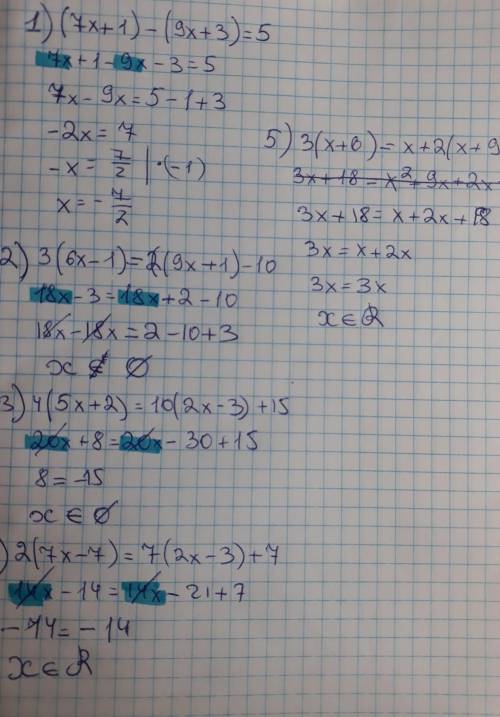 1) (7x+1)-(9x+3)=5
7x+1-9x-3=5
7x-9x=5-1+3
-2x=7
-x= 7/2 | ·(-1)
x=- 7/2
2) 3(6x-1)=2(9x+1)-10
18x-3=18x+2-10
18x-18x=2-10+3
x ∉ ∅
3) 4(5x+2)=10(2x-3)+15
20x+8=20x-30+15
8=-15
x ∈ ∅
) 2(7x-7)=7(2x-3)+7
14x-14=14x-21+7
-14=-14
x ∈ R
5) 3(x+6)=x+2(x+9
3x+18=x²+9x+2x
3x+18=x+2x+18
3x=x+2x
3x=3x
x ∈ R